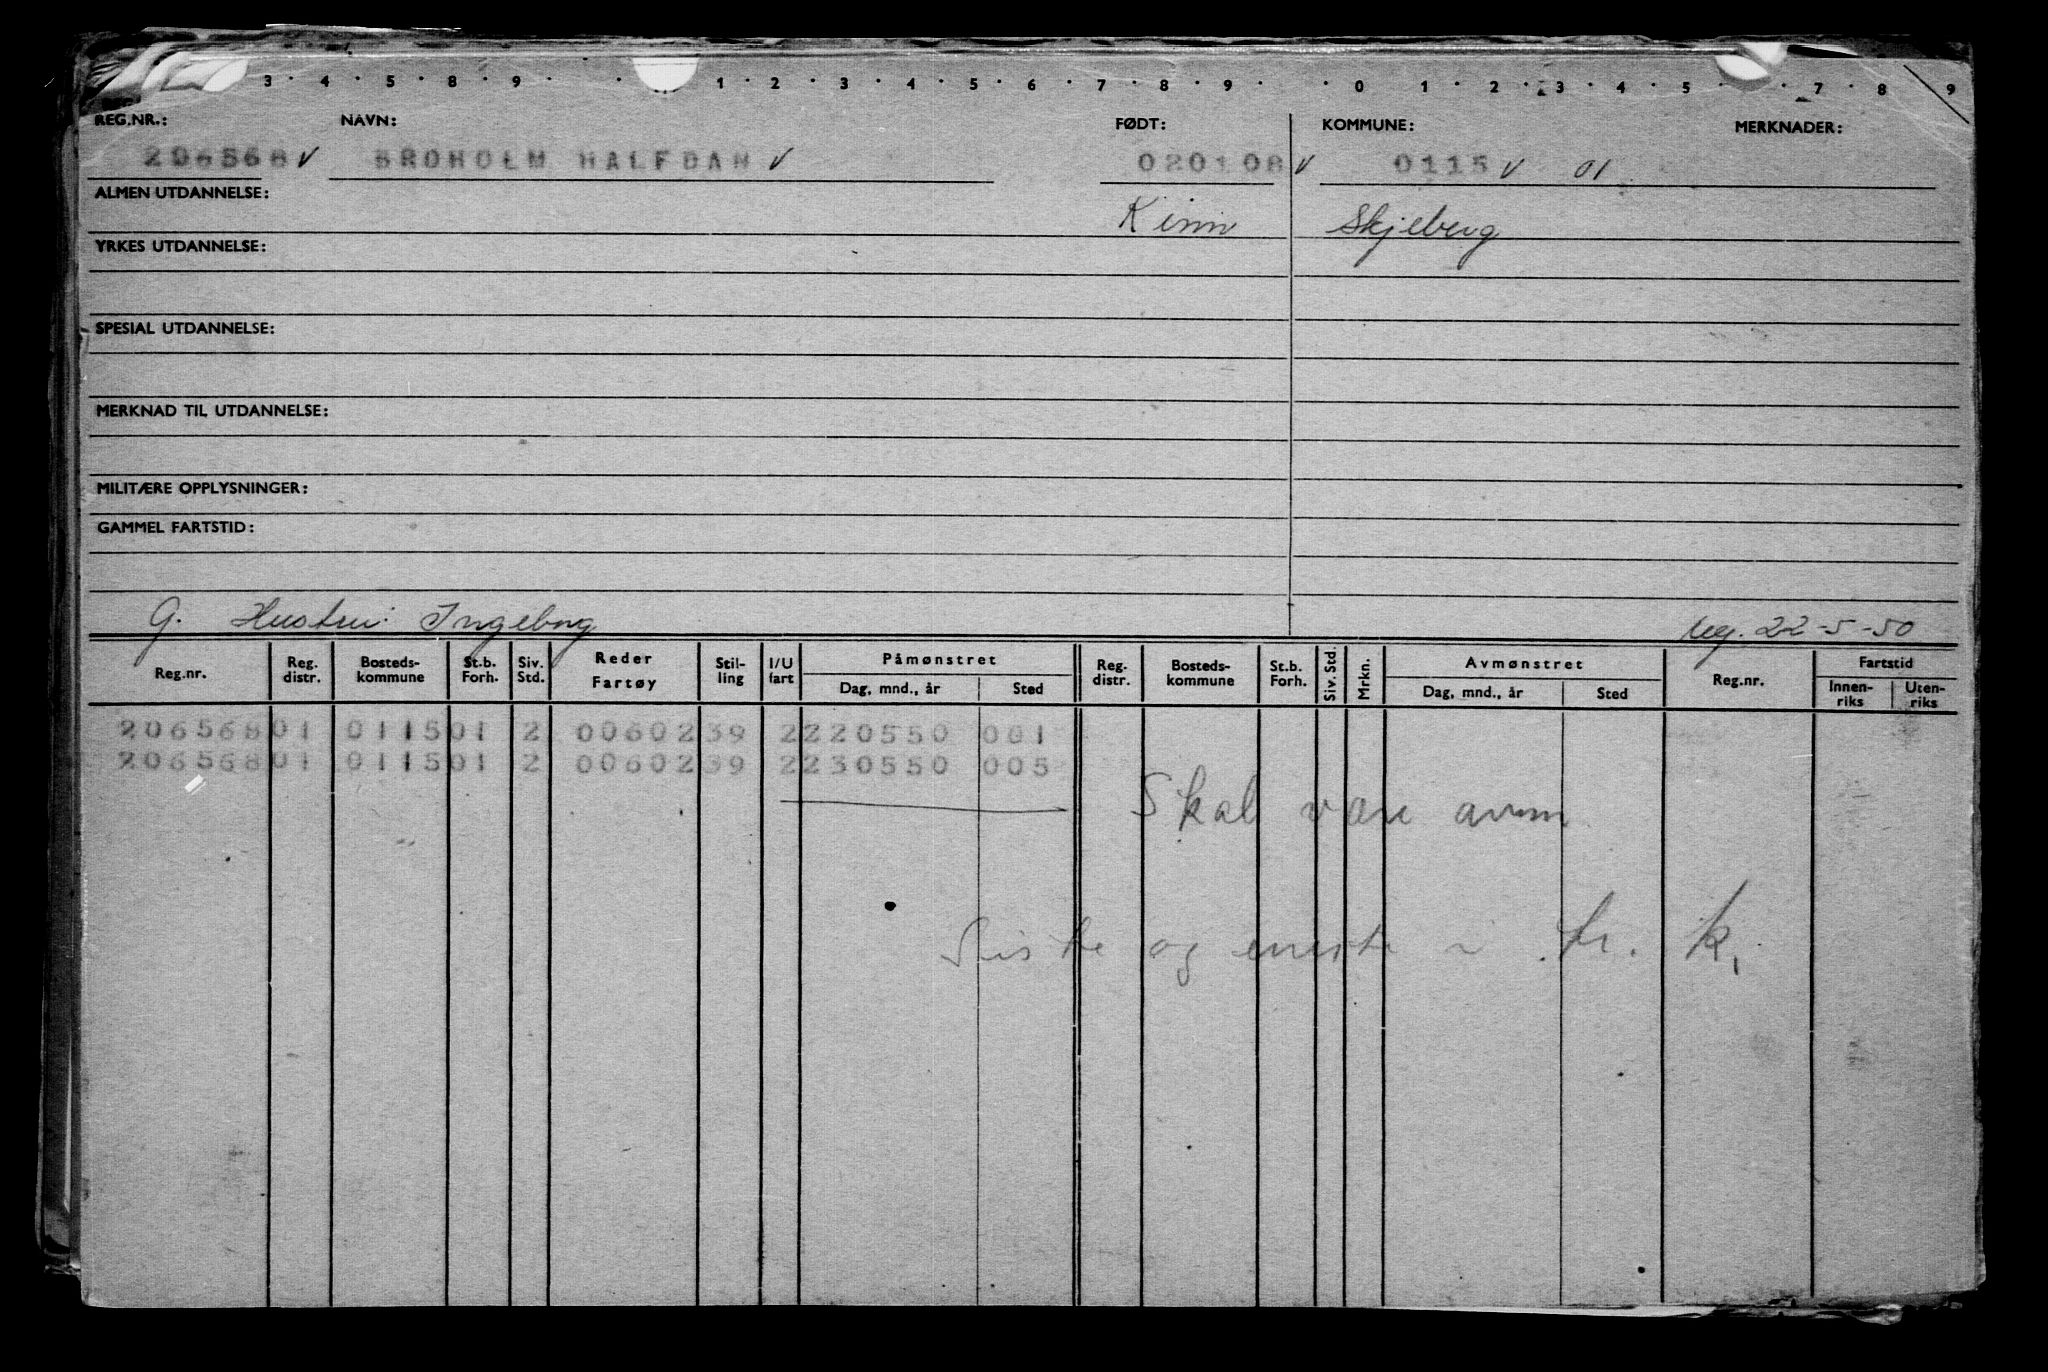 3 · 4 · 5 · 8 · 9 · · 1 · 2 · 3 · 4 · 5 · 6 · 7 · 8 · 9 · · 0 · 1 · 2 · 3 · 4 · 5 · · 7 · 8 · 9
REG.NR.: NAVN: FØDT: KOMMUNE: MERKNADER:
206568 v BROHOLM HALFDAN v 020108 v 0115 v 01
ALMEN UTDANNELSE: Kinn Skjeberg
YRKES UTDANNELSE:
SPESIAL UTDANNELSE:
MERKNAD TIL UTDANNELSE:
MILITÆRE OPPLYSNINGER:
GAMMEL FARTSTID:
G. Hustru: Ingeborg 22-5-50
Reg.nr. Reg. distr. Bosteds-kommune St.b. Forh. Siv. Std. Reder Fartøy Stil-ling I/U fart Påmønstret Dag, mnd., år Sted Reg- distr. Bosteds-kommune St.b. Forh. Siv. Std. Mrkn. Avmønstret Dag, mnd., år Sted Reg.nr. Fartstid Innen-riks Uten-riks
206568 01 0115 01 2 00602 39 2 220550 001
206568 01 0115 01 2 00602 39 2 230550 005
Skal være avm
Siste og eneste i k.